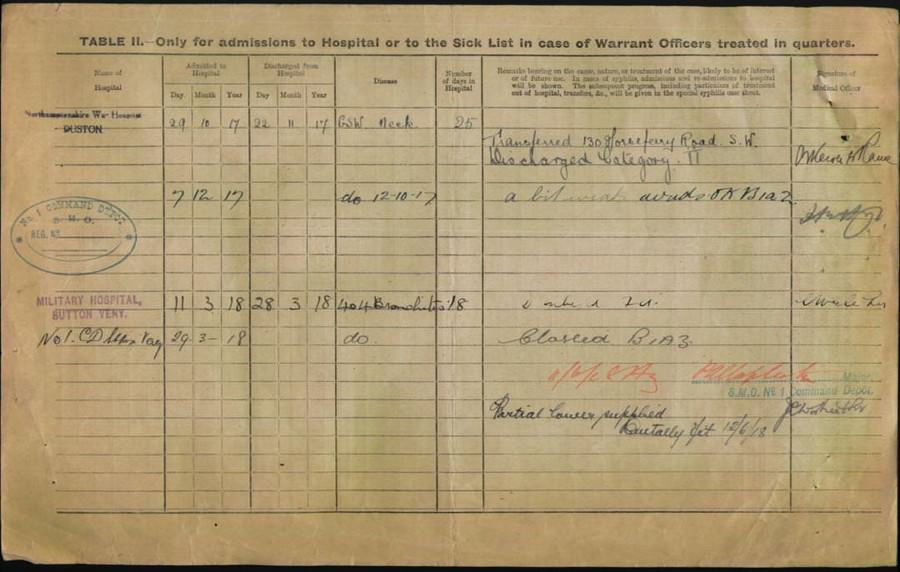 TABLE II.—Only for admissions to Hospital or to the Sick List in case of Warrant Officers treated in quarters.
Name of Hospital
Admitted to Hospital
Discharged from Hospital
Disease
Number of days in Hospital
Remarks bearing on the cause, nature, or treatment of the case, likely to be of interest
or of future use. In cases of syphilis, admissions and re-admissions to hospital
will be shown. The subsequent progress, including particulars of treatment
out of hospital, transfers, &c., will be given in the special syphilis case sheet.
Signature of Medical Officer
Day Month Year Day Month Year
Northamptonshire War Hospital
DUSTON
29 10 17 22 11 17 GSW Neck 25
Transferred 130 Horseferry Road. S.W.
Discharged Category. II
7 12 17 do 12-10-17 a bit weak B1a2
No 1 COMMAND DEPOT
S. M. O.
REG. No
MILITARY HOSPITAL,
SUTTON VENY.
11 3 18 28 3 18 404 Bronchitis 18
No 1. CD 29 3 - 18 do. Classed B1A3
Major
S.M.O. No 1 Command Depot.
Partial lower supplied
Dentally fit 12/6/18